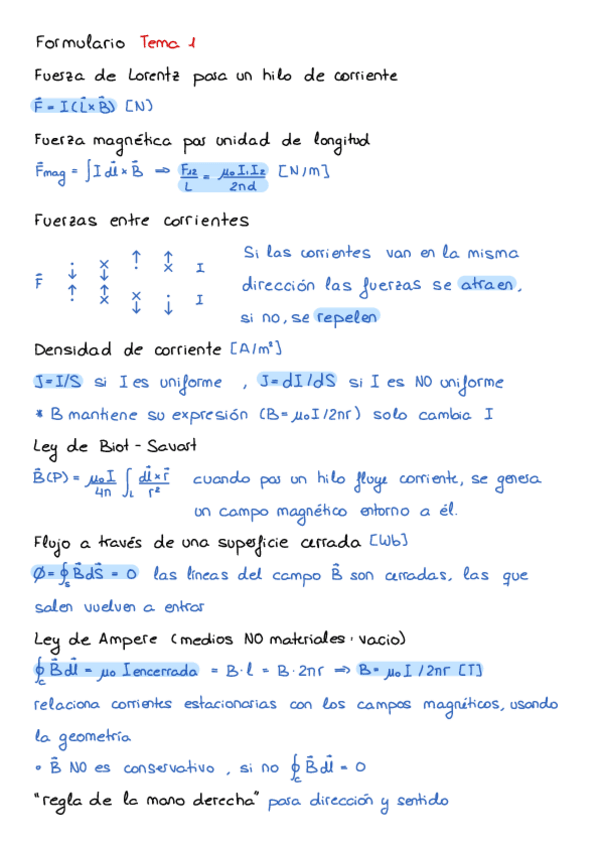 Formulario Tema 1
Fuerza de Lorentz para un hilo de corriente
F⃗ = I(L⃗ × B⃗) [N]
Fuerza magnética por unidad de longitud
F⃗mag = ∫ I dl⃗ × B⃗ ⇒ F₁₂/L = μ₀I₁I₂/2πd [N/m]
Fuerzas entre corrientes
F⃗ · ↓ × ↓ ↑ · ↑ × I
↑ · ↑ × × ↓ · ↓ I
Si las corrientes van en la misma
dirección las fuerzas se atraen,
si no, se repelen
Densidad de corriente [A/m²]
J = I/S si I es uniforme , J = dI/dS si I es NO uniforme
* B mantiene su expresión (B = μ₀I/2πr) solo cambia I
Ley de Biot - Savart
B⃗(P) = μ₀I/4π ∫L dl⃗ × r⃗/r² cuando por un hilo fluye corriente, se genera
un campo magnético entorno a él.
Flujo a través de una superficie cerrada [Wb]
Ø = ∮s B⃗ dS⃗ = 0 las líneas del campo B⃗ son cerradas, las que
salen vuelven a entrar
Ley de Ampere (medios NO materiales · vacio)
∮c B⃗ dl⃗ = μ₀ Iencerrada = B · l = B · 2πr ⇒ B = μ₀ I / 2πr [T]
relaciona corrientes estacionarias con los campos magnéticos, usando
la geometría
• B⃗ NO es conservativo , si no ∮c B⃗ dl⃗ = 0
"regla de la mano derecha" para dirección y sentido